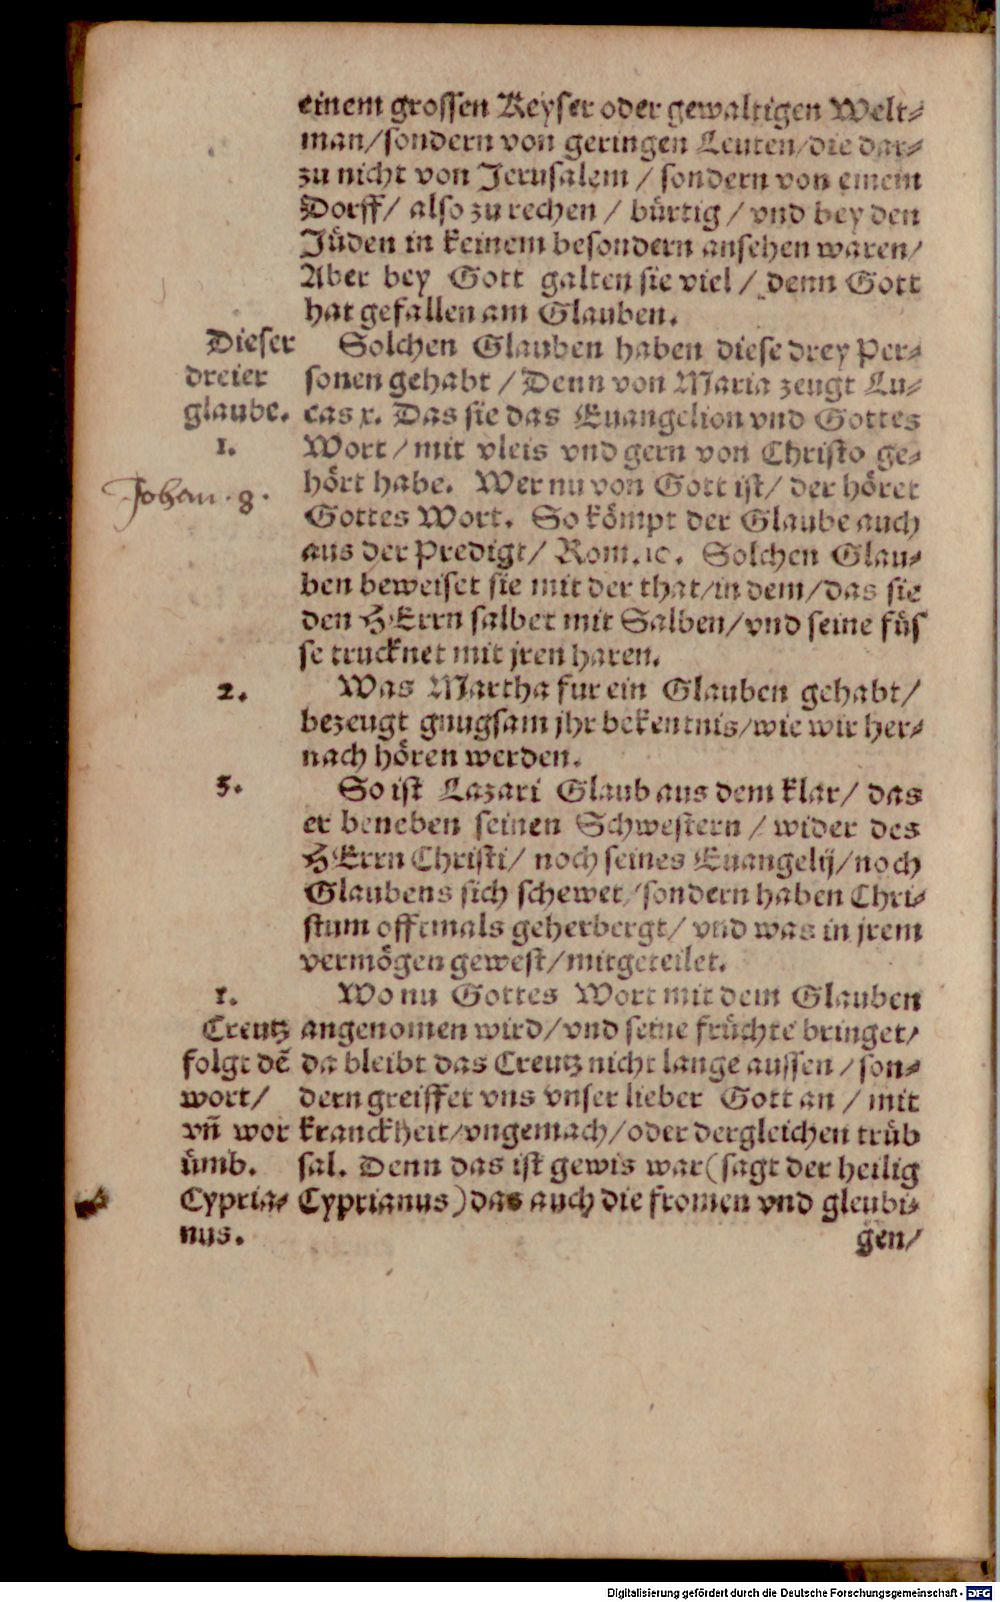 einem grossen Keyser oder gewaltigen Welt⸗
man/sondern von geringen Leuten/die dar⸗
zu nicht von Jerusalem / sondern von einem
Dorff/ also zu rechen / bürtig / vnd bey den
Jüden in keinem besondern ansehen waren/
Aber bey Gott galten sie viel / denn Gott
hat gefallen am Glauben.
Dieser
dreier
glaube.
1.
Johan. 8.
Solchen Glauben haben diese drey Per⸗
sonen gehabt / Denn von Maria zeugt Lu⸗
cas x. Das sie das Euangelion vnd Gottes
Wort / mit vleis vnd gern von Christo ge⸗
hört habe. Wer nu von Gott ist/ der höret
Gottes Wort. So kömpt der Glaube auch
aus der Predigt/ Rom.10. Solchen Glau⸗
ben beweiset sie mit der that/in dem/das sie
den HErrn salbet mit Salben/vnd seine füs
se trucknet mit jren haren.
2.
Was Martha fur ein Glauben gehabt/
bezeugt gnugsam jhr bekentnis/wie wir her⸗
nach hören werden.
3.
So ist Lazari Glaub aus dem klar/ das
er beneben seinen Schwestern / wider des
HErrn Christi/ noch seines Euangelij/noch
Glaubens sich schewet/sondern haben Chri⸗
stum offtmals geherbergt/ vnd was in jrem
vermögen gewest/mitgeteilet.
1.
Creutz
folgt dẽ
wort/
vñ wor
ümb.
Cypria⸗
nus.
Wo nu Gottes Wort mit dem Glauben
angenomen wird/vnd seine früchte bringet/
da bleibt das Creutz nicht lange aussen / son⸗
dern greiffet vns vnser lieber Gott an / mit
kranckheit/vngemach/oder dergleichen trüb
sal. Denn das ist gewis war(sagt der heilig
Cyprianus)das auch die fromen vnd gleubi⸗
gen/
Digitalisierung gefördert durch die Deutsche Forschungsgemeinschaft - DFG